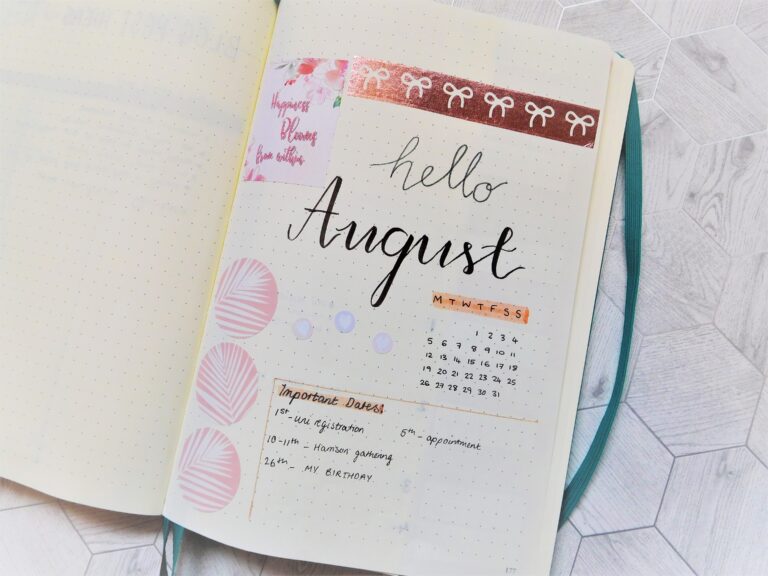 Happiness
Blooms
from within
hello
August
M T W T F S S
1 2 3 4
5 6 7 8 9 10 11
12 13 14 15 16 17 18
19 20 21 22 23 24 25
26 27 28 29 30 31
Important Dates:
1st - uni registration
5th - appointment
10-11th - gathering
26th - MY BIRTHDAY